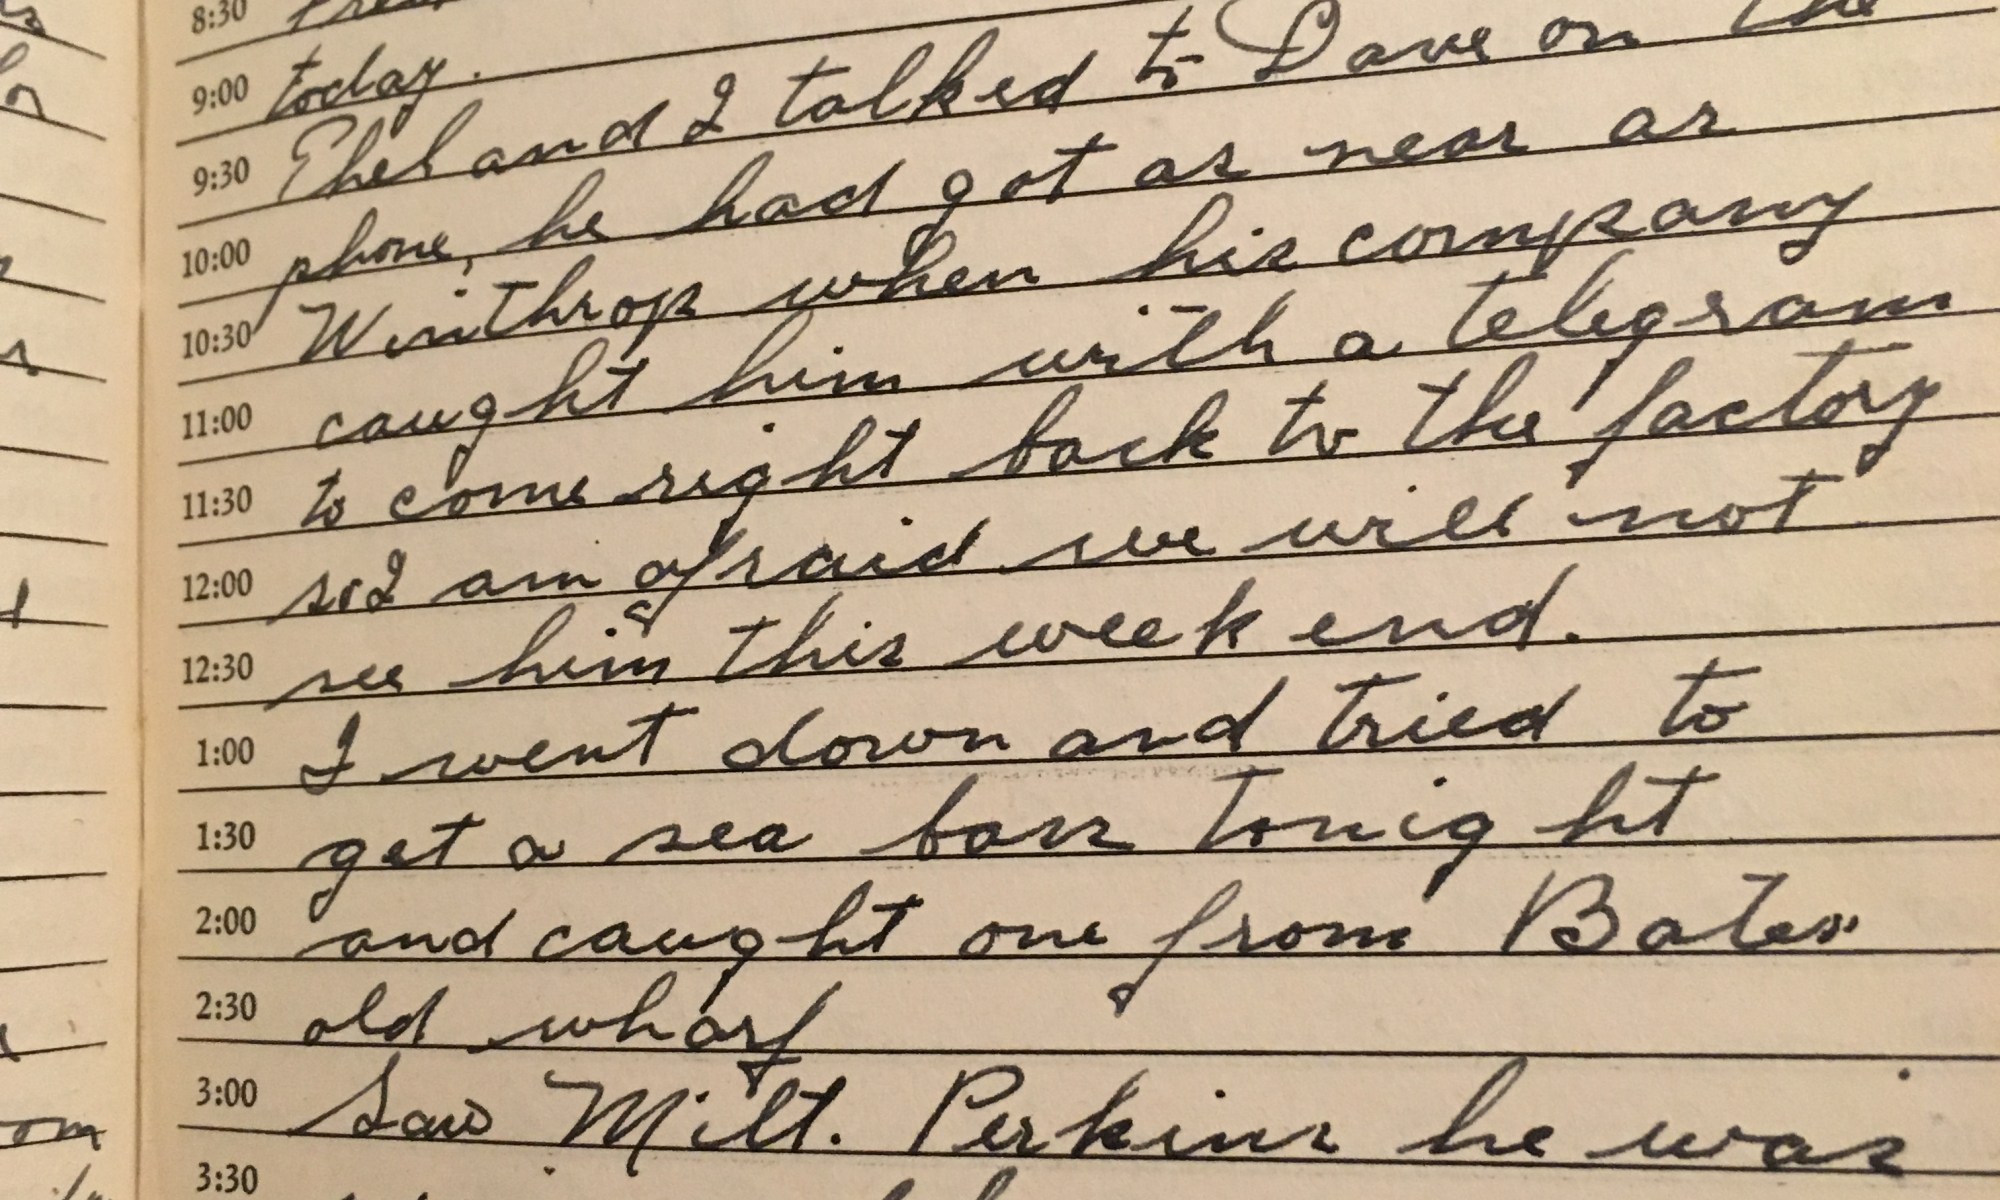 8:30
9:00 today.
9:30 Ethel and I talked to Dave on the
10:00 phone, he had got as near as
10:30 Winthrop when his company
11:00 caught him with a telegram
11:30 to come right back to the factory
12:00 so I am afraid we will not
12:30 see him this week end.
1:00 I went down and tried to
1:30 get a sea bass tonight
2:00 and caught one from Bates
2:30 old wharf
3:00 Saw Milt. Perkins he was
3:30